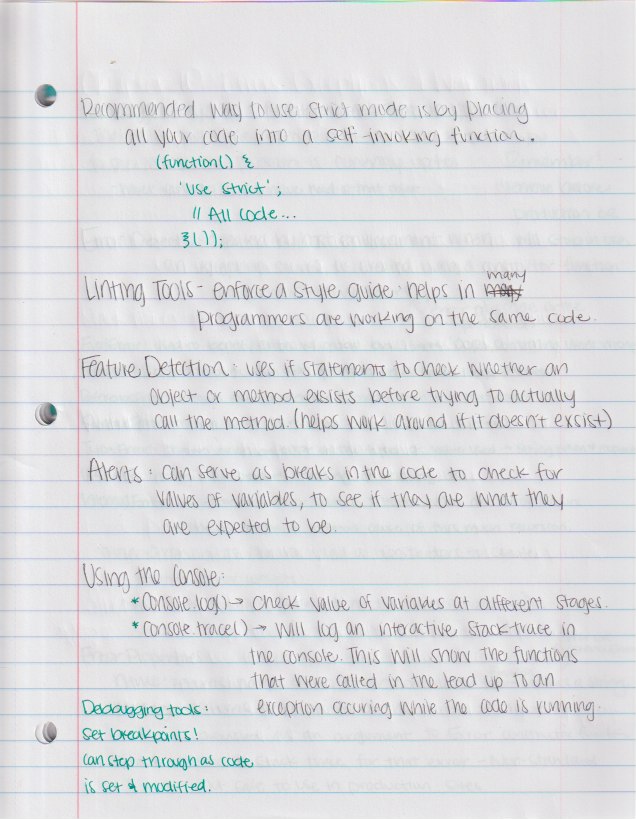 Recommended way to use strict mode is by placing
all your code into a self-invoking function.
(function() {
'use strict';
// All code...
}());
Linting Tools - enforce a style guide. helps in many
programmers are working on the same code.
Feature Detection: uses if statements to check whether an
object or method exsists before trying to actually
call the method. (helps work around if it doesn't exsist)
Alerts: can serve as breaks in the code to check for
values of variables, to see if they are what they
are expected to be.
Using the Console:
*Console.log() → check value of variables at different stages.
*Console.trace() → Will log an interactive stack-trace in
the console. This will show the functions
that were called in the lead up to an
exception occuring while the code is running.
Debugging tools:
set breakpoints!
can step through as code
is set & modified.